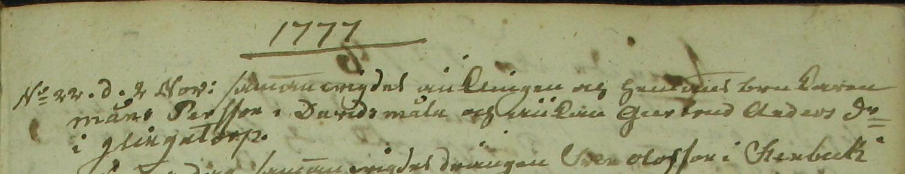 1777
No 22. d. 2 Nov: Sam̄anwigdes änklingen och hem̄ans brukaren
måns Persson i Davidsmåla och änkan Giertrud Anders Dr
i glingetorp.
samanwigdes drängen Sven olofsson i Stenbeck